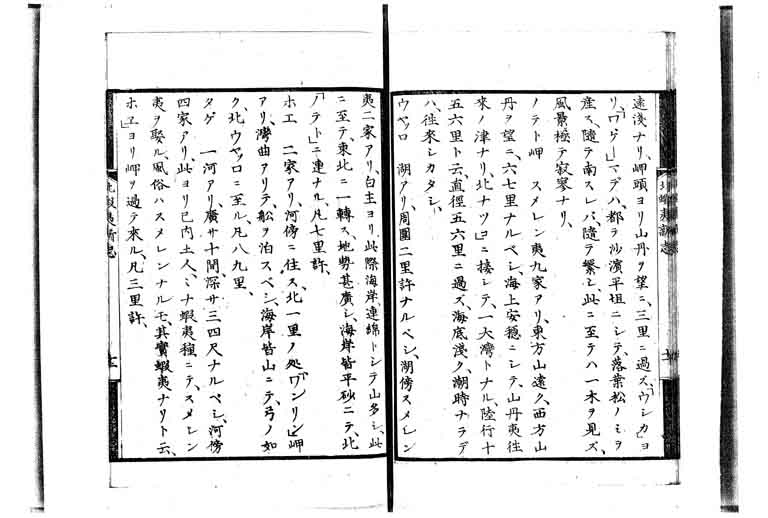 遠淺ナリ、岬頭ヨリ山丹ヲ望ニ、三里ニ過ズ、「ウシカ」ヨ
リ、「ワゲー」マデハ、都テ沙濱平坦ニシテ、落葉松ノミヲ
産ス、隨テ南スレバ、隨テ繁シ、此ニ至テハ一木ヲ見ズ、
風景極テ寂寥ナリ、
ノテト岬 スメレン夷九家アリ、東方山遠ク、西方山
丹ヲ望ニ、六七里ナルベシ、海上安穏ニシテ、山丹夷往
來ノ津ナリ、北ナツコニ接シテ、一大灣トナル、陸行十
五六里ト云、直徑五六里ニ過ズ、海底淺ク、潮時ナラデ
ハ、往來シカタシ、
ウヤッロ 湖アリ、周圍二里許ナルベシ、湖傍スメレン
夷二家アリ、白主ヨリ此際海岸連綿トシテ山多シ、此
ニ至テ、東北ニ一轉ス、地勢甚廣シ、海岸皆平砂ニテ、北
「ノテト」ニ連ナル、凡七里許、
ホエ 二家アリ、河傍ニ住ス、北一里ノ処「ワンリン」岬
アリ、灣曲アリテ、船ヲ泊スベシ、海岸皆山ニテ、弓ノ如
ク、北ウヤッロニ至ル、凡八九里、
タゲ 一河アリ、廣サ十間、深サ三四尺ナルベシ、河傍
四家アリ、此ヨリ已内土人、ミナ蝦夷種ニテ、スメレン
夷ヲ娶ル、風俗ハスメレンナルモ、其實蝦夷ナリト云、
「ホエ」ヨリ岬ヲ過テ來ル、凡三里許、
北蝦夷新志